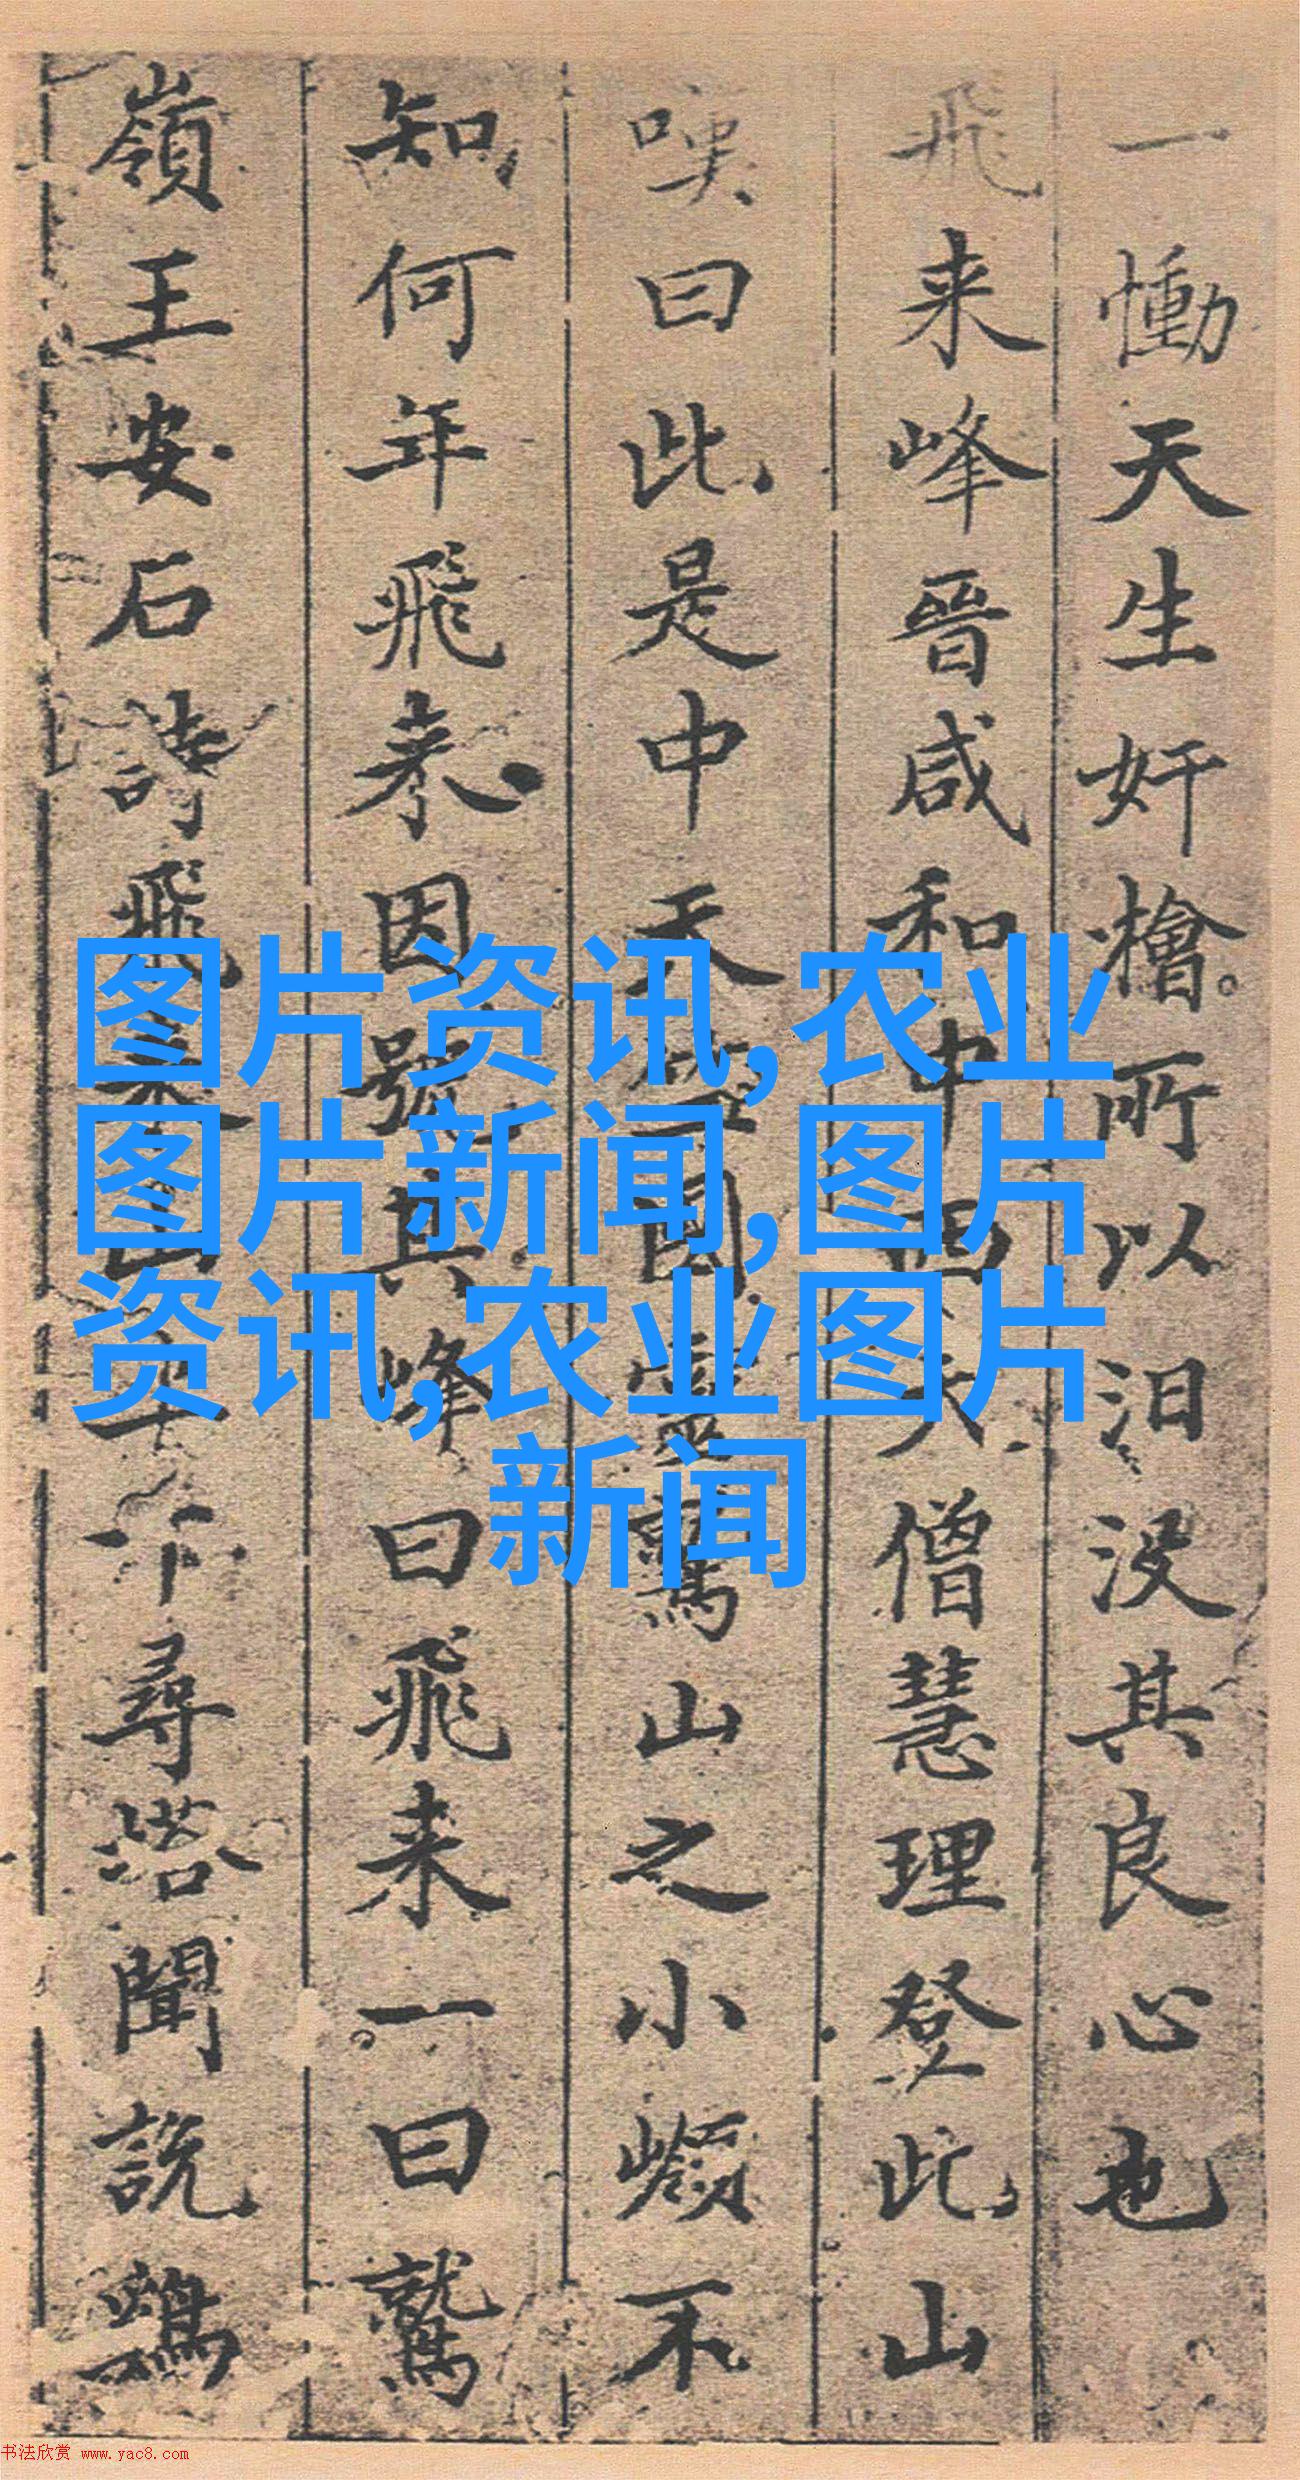 一慟天生奸檜所以汨没其良心也
飛来峰晉咸和中西天僧慧理登此山
嘆曰此是中天竺國靈鷲山之小嶺不
知何年飛来因號其峰曰飛来一曰鷲
嶺王安石詩飛来山上千尋塔聞説鷄
图片资讯,农业
图片新闻,图片
资讯,农业图片
新闻
书法欣赏 www.yac8.com